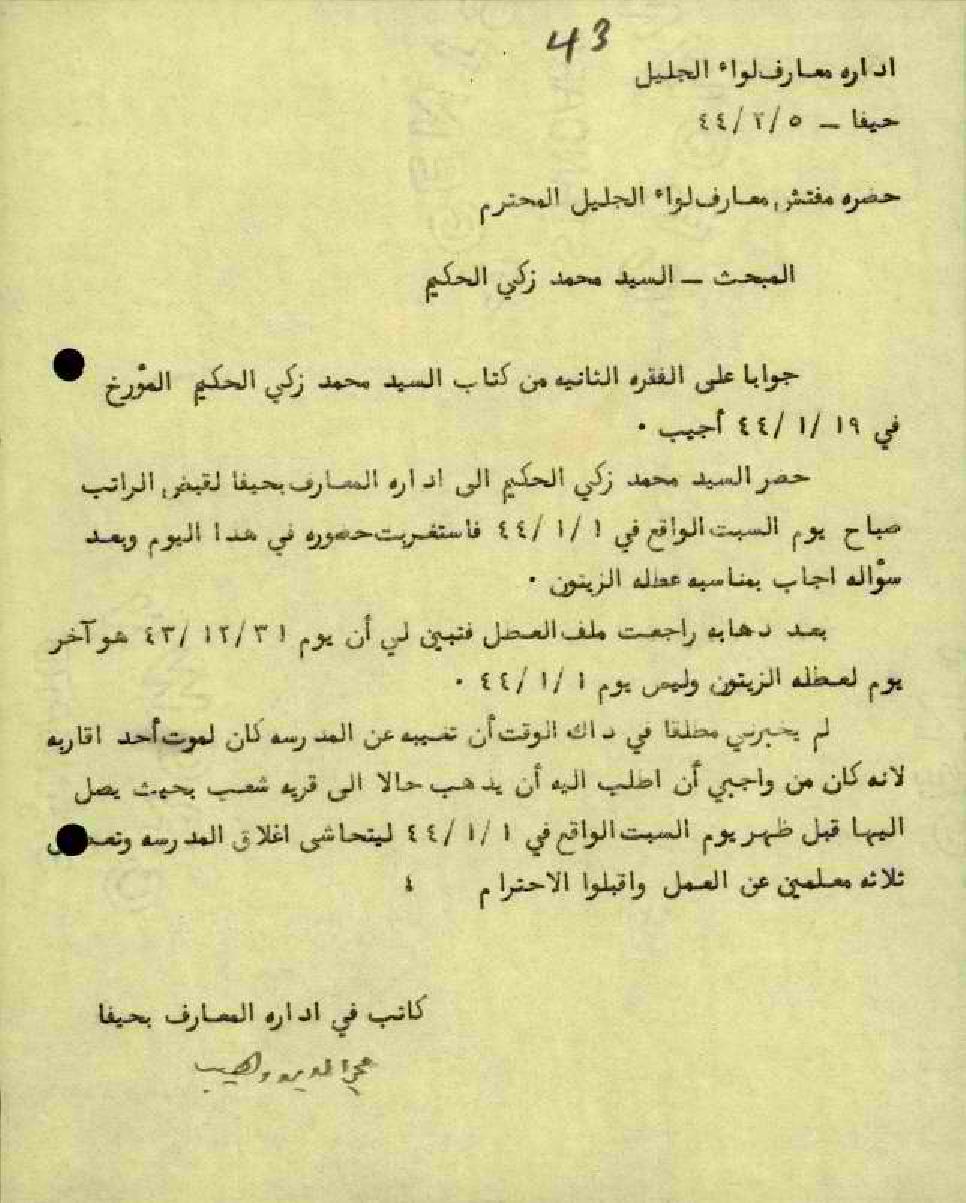 43
اداره معارف لواء الجليل
حيفا – ٤٤/٢/٥
حضره مفتش معارف لواء الجليل المحترم
المبحث – السيد محمد زكي الحكيم
جوابا على الفقره الثانيه من كتاب السيد محمد زكي الحكيم المؤرخ
في ٤٤/١/١٩ أجيب ٠
حضر السيد محمد زكي الحكيم الى اداره المعارف بحيفا لقبض الراتب
صباح يوم السبت الواقع في ٤٤/١/١ فاستغربت حضوره في هدا اليوم وبعد
سؤاله اجاب بمناسبه عطله الزيتون ٠
بعد دهابه راجعت ملف العطل فتبين لي أن يوم ٤٣/١٢/٣١ هو آخر
يوم لعطله الزيتون وليس يوم ٤٤/١/١ ٠
لم يخبرني مطلقا في داك الوقت أن تغيبه عن المدرسه كان لموت أحد اقاربه
لانه كان من واجبي أن اطلب اليه أن يدهب حالا الى قريه شعب بحيث يصل
اليها قبل ظهر يوم السبت الواقع في ٤٤/١/١ ليتحاشى اغلاق المدرسه
ثلاثه معلمين عن العمل واقبلوا الاحترام ٤
كاتب في اداره المعارف بحيفا